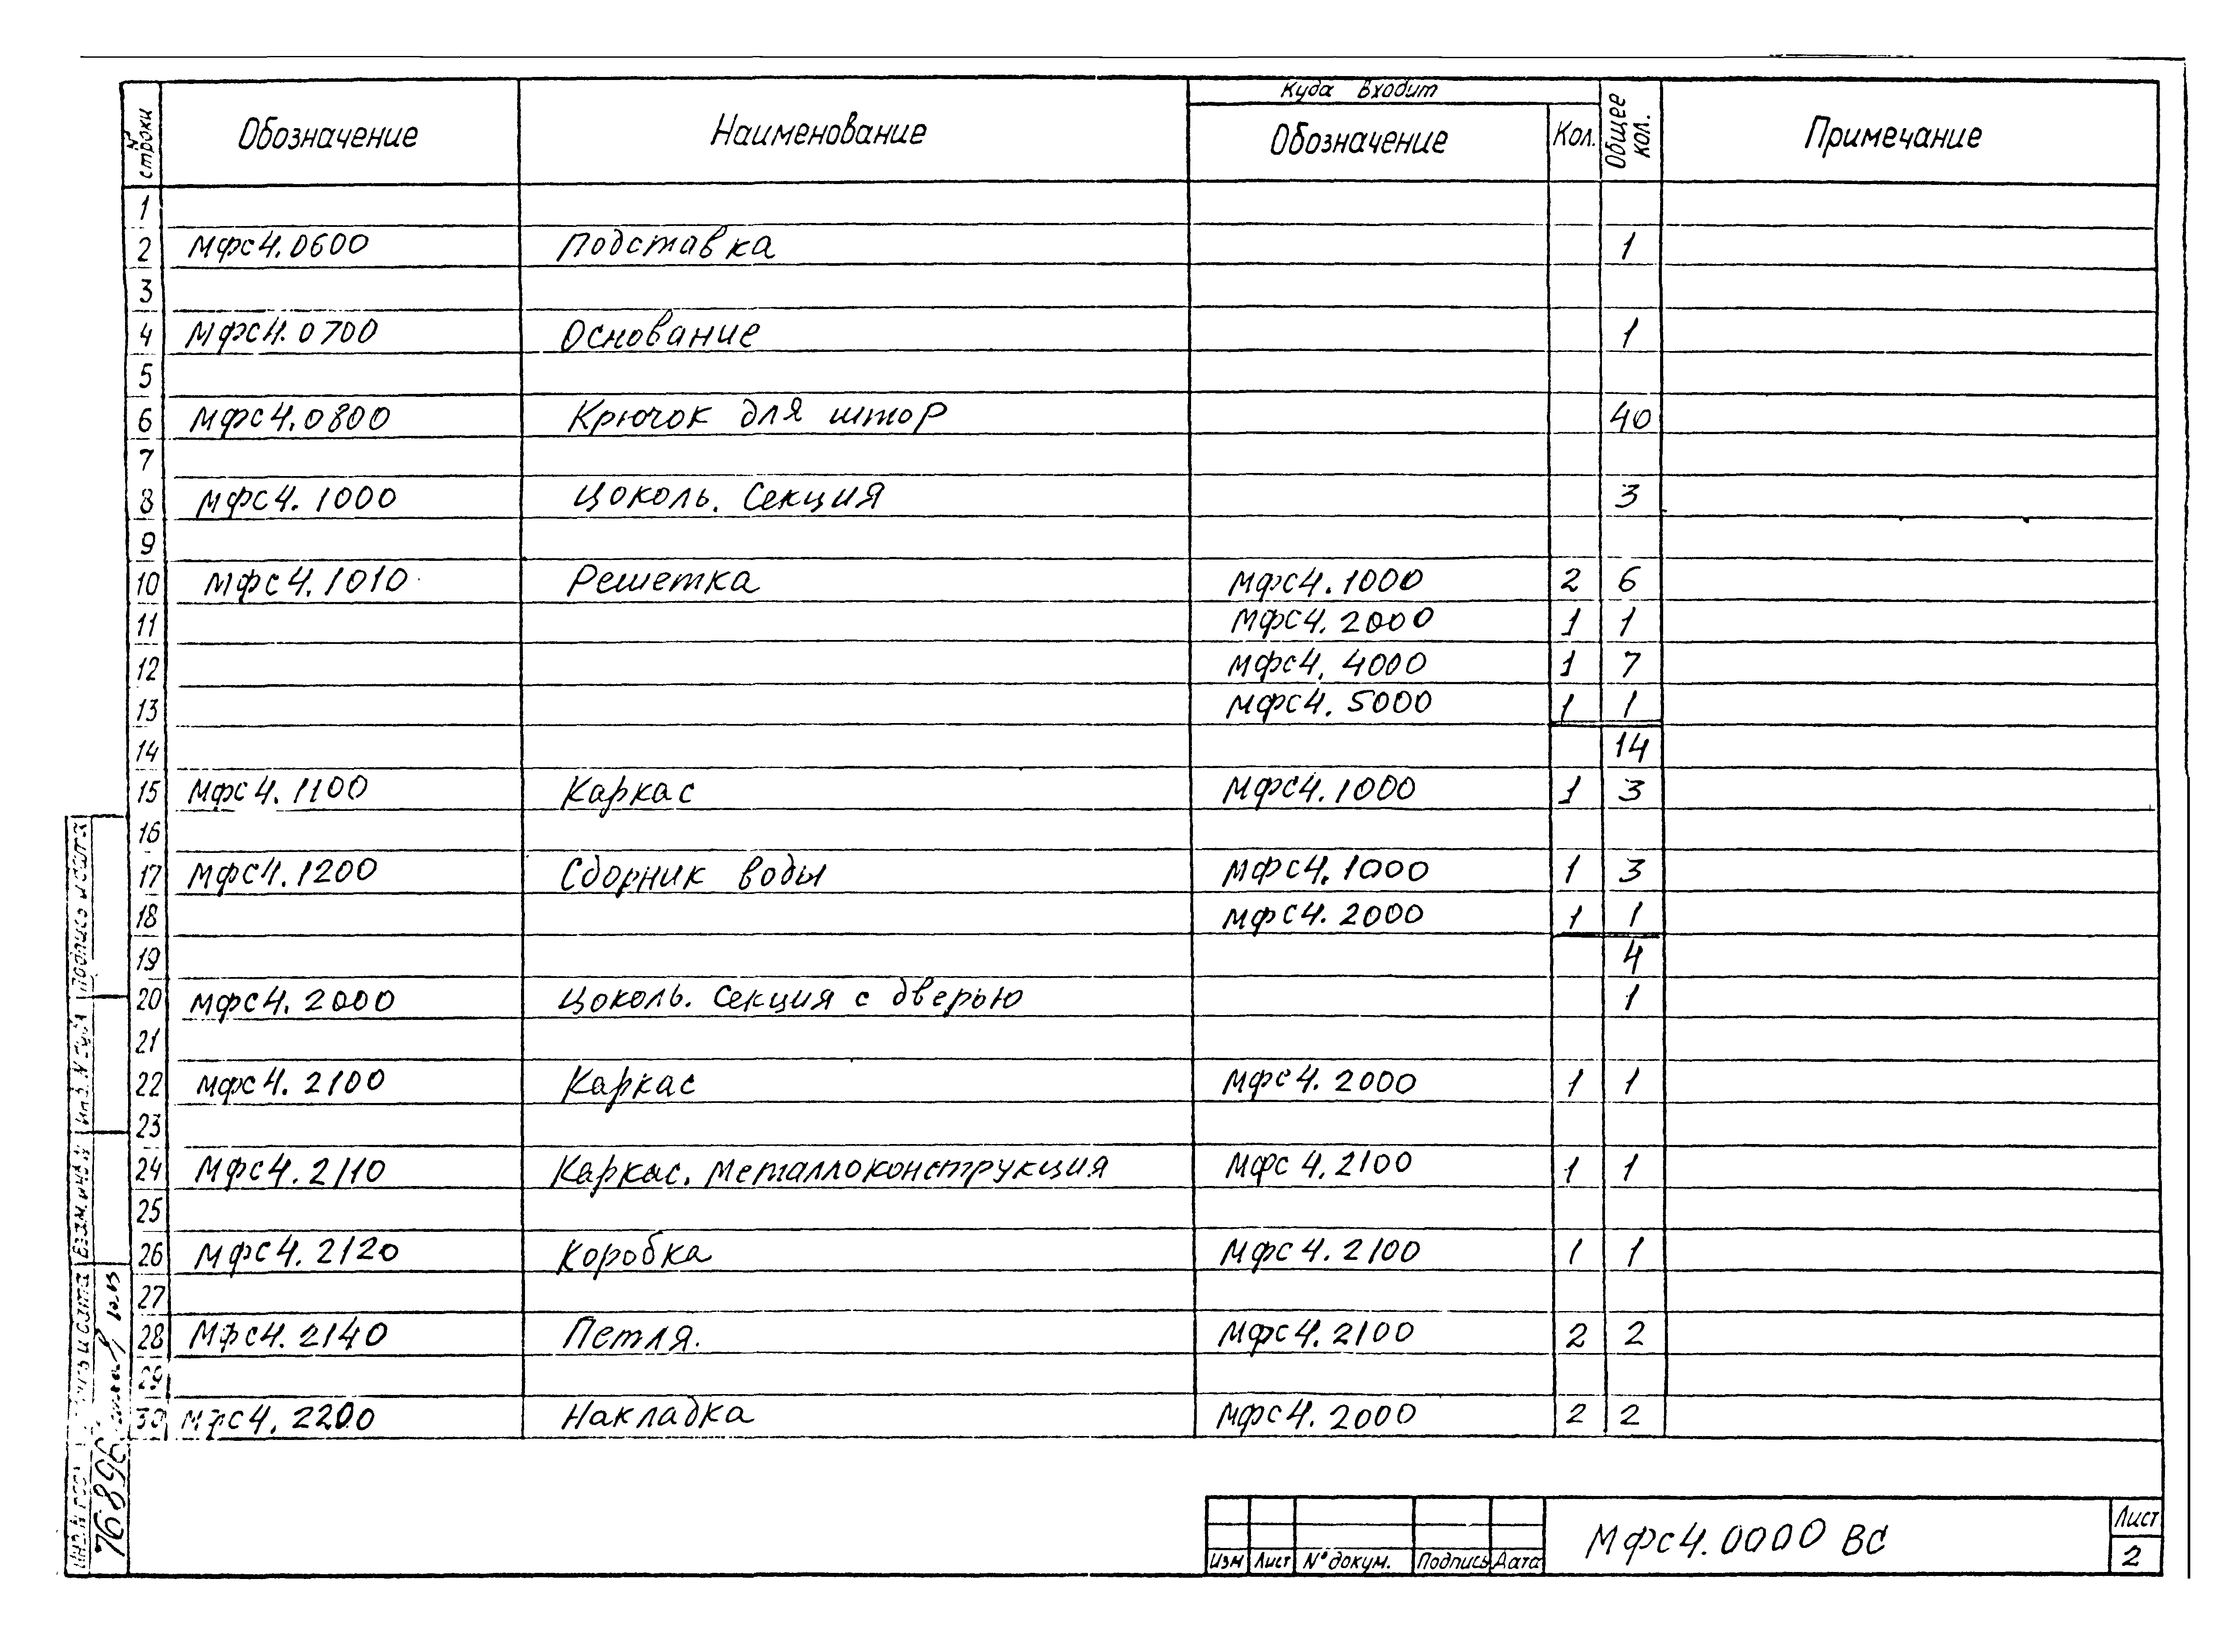 № строки Обозначение Наименование Куда входит Общее кол. Примечание
Обозначение Кол.
1
2 МФС4.0600 Подставка 1
3
4 МФС4.0700 Основание 1
5
6 МФС4.0800 Крючок для штор 40
7
8 МФС4.1000 Цоколь. Секция 3
9
10 МФС4.1010 Решетка МФС4.1000 2 6
11 МФС4.2000 1 1
12 МФС4.4000 1 7
13 МФС4.5000 1 1
14 14
15 МФС4.1100 Каркас МФС4.1000 1 3
16
17 МФС4.1200 Сборник воды МФС4.1000 1 3
18 МФС4.2000 1 1
19 4
20 МФС4.2000 Цоколь. Секция с дверью 1
21
22 МФС4.2100 Каркас МФС4.2000 1 1
23
24 МФС4.2110 Каркас. Металлоконструкция МФС4.2100 1 1
25
26 МФС4.2120 Коробка МФС4.2100 1 1
27
28 МФС4.2140 Петля. МФС4.2100 2 2
29
30 МФС4.2200 Накладка МФС4.2000 2 2
Подпись и дата
Инв. № дубл.
Взам. инв. №
76896
Изм Лист № докум. Подпись Дата
МФС4.0000 ВС
Лист
2